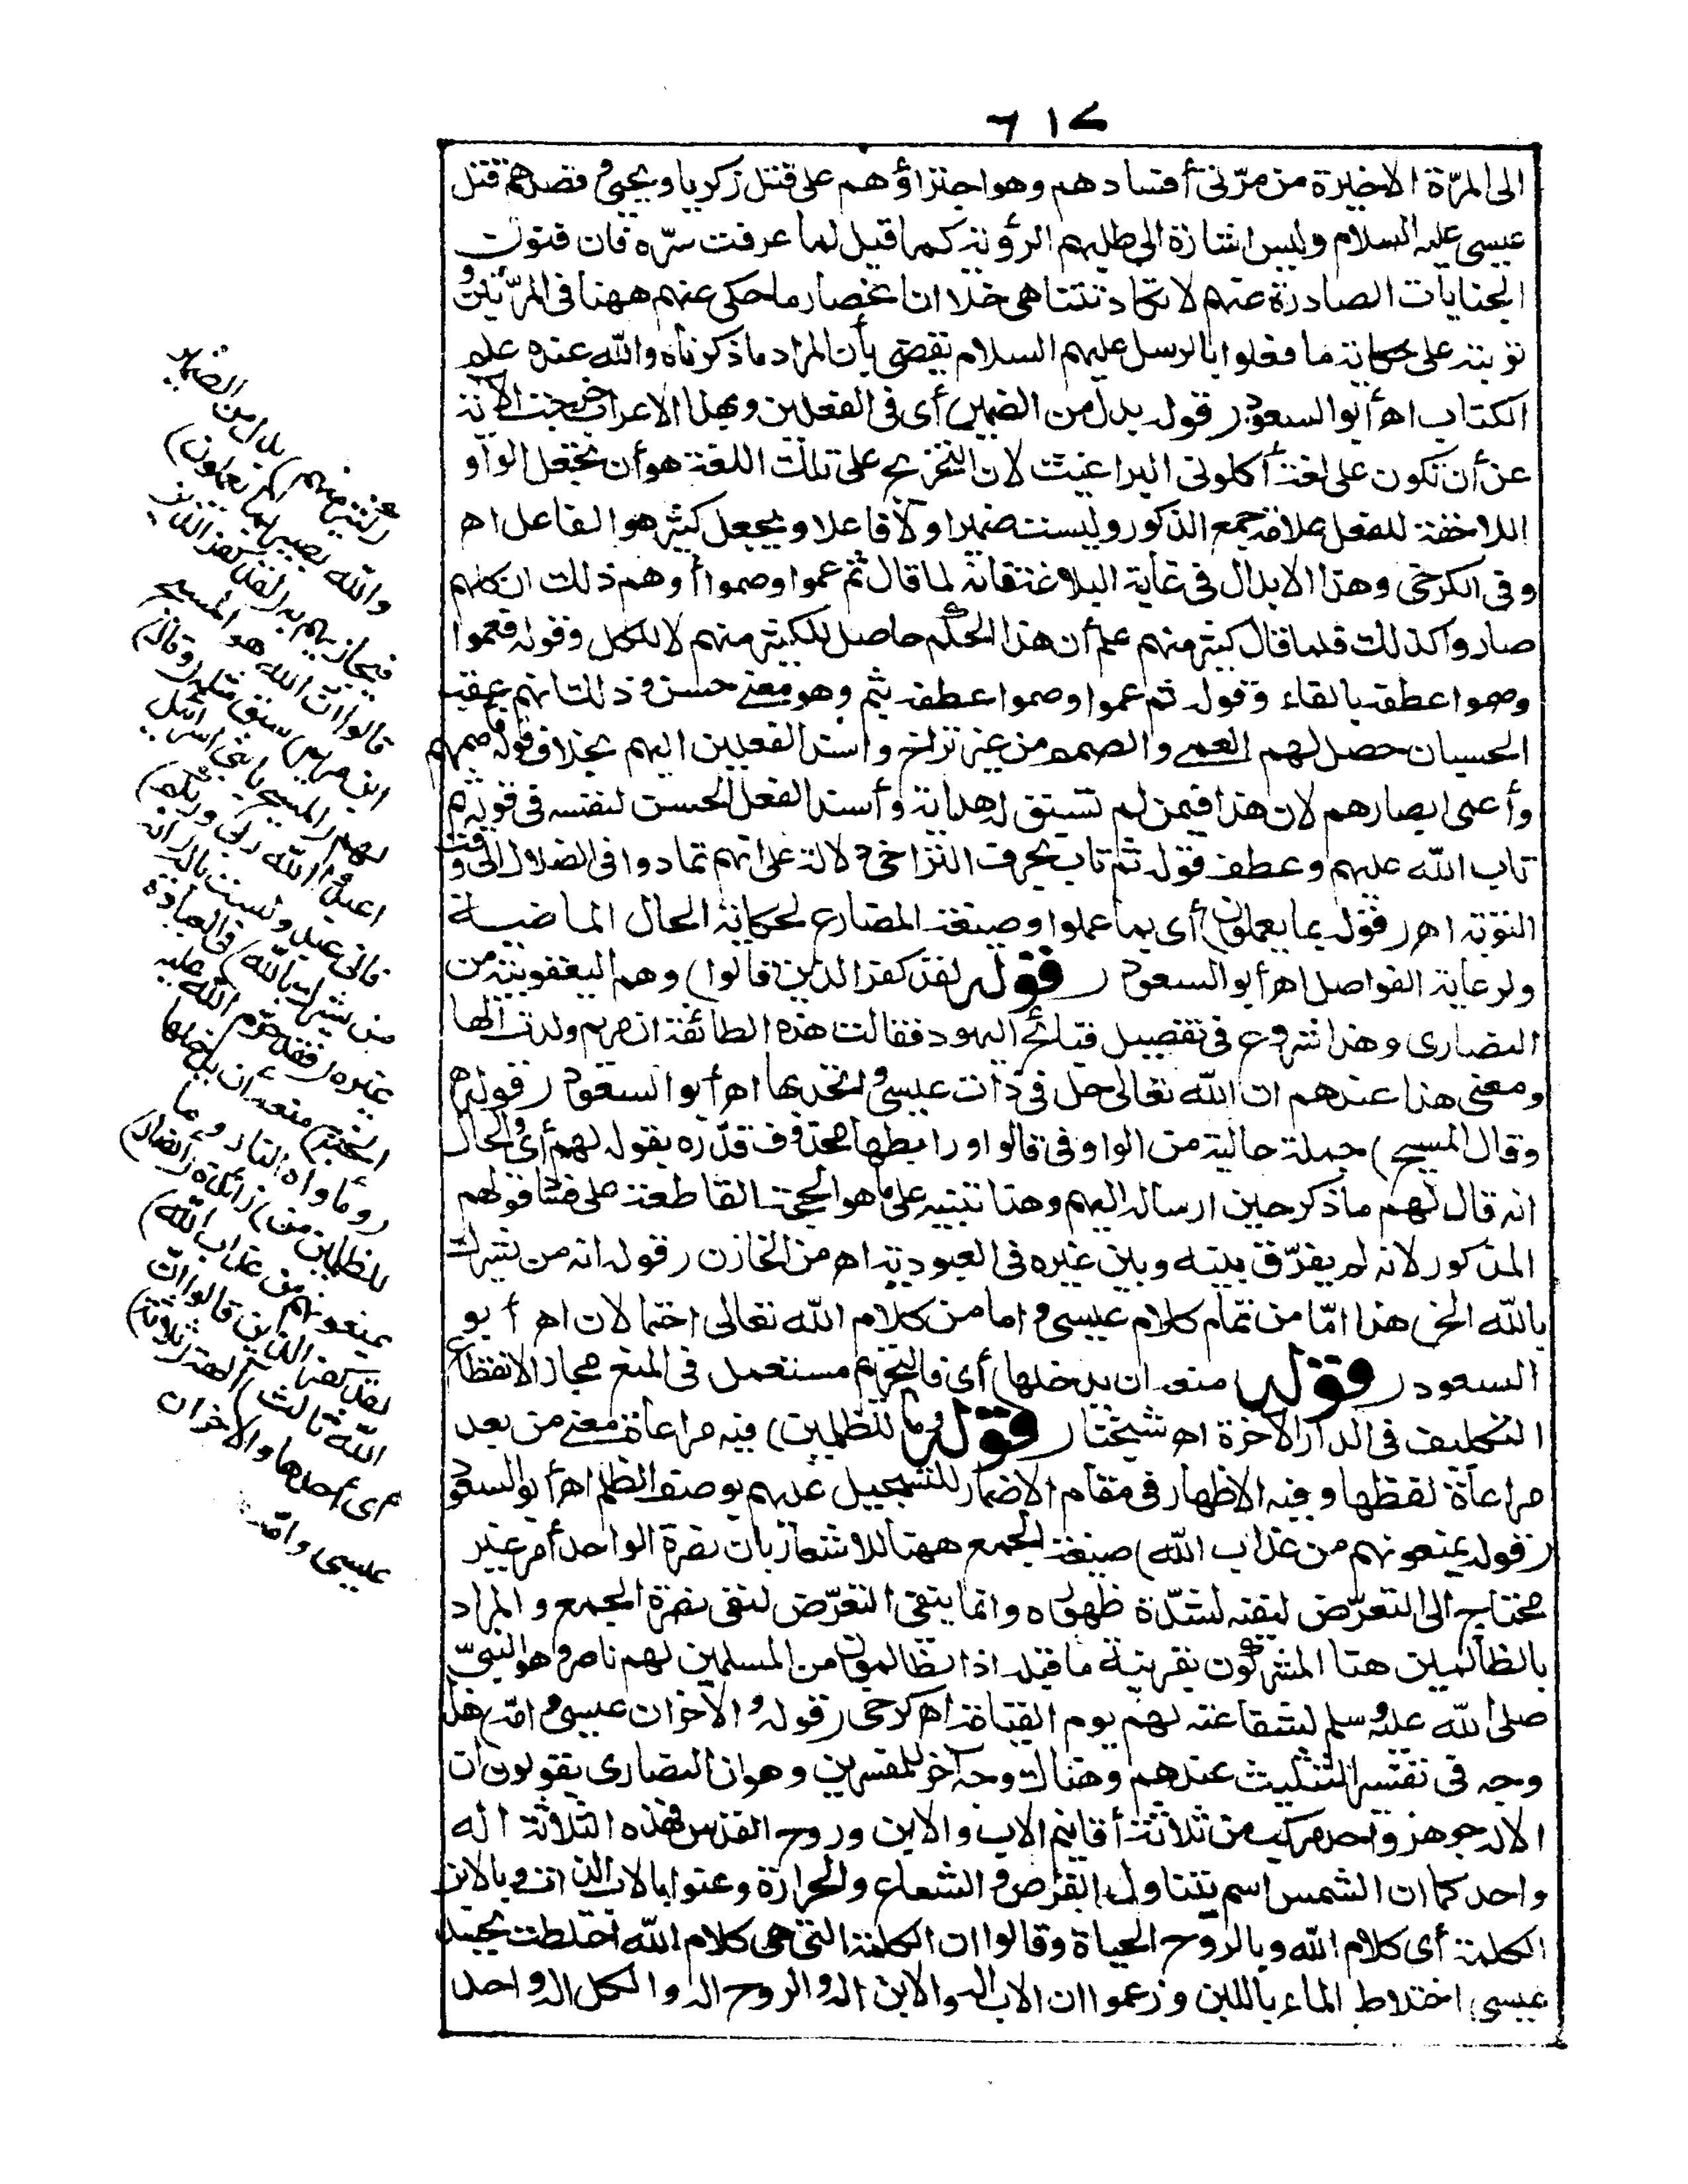 ٦١٧
الى المرّة الاخيرة من مرّتى أفسادهم وهو اجتراؤهم على قتل زكريا ويحيى وقصدهم قتل
عيسى عليه السلام وليس اشارة الى طلبهم الرؤية كما قيل لما عرفت سرّه فان فنون
الجنايات الصادرة عنهم لا تكاد تتناهى خلا ان انحصار ما حكى عنهم ههنا فى المرّتين و
ترتبه على حكاية ما فعلوا بالرسل عليهم السلام يقضى بأن المراد ما ذكرناه والله عنده علم
الكتاب اه أبو السعود (قوله بدل من الضمير) أى فى الفعلين وبهذا الاعراب خرجت الآية
عن أن تكون على لغة أكلونى البراغيث لان التخريج على تلك اللغة هو أن تجعل الواو
اللاحقة للفعل علامة جمع الذكور وليست ضميرا ولا فاعلا ويجعل كثير هو الفاعل اه
وفى الكرخى وهذا الابدال فى غاية البلاغة فانه لما قال ثم عموا وصموا أوهم ذلك ان كلهم
صاروا كذلك فلما قال كثير منهم علم أن هذا الحكم حاصل للكثير منهم لا للكل وقوله فعموا
وصموا عطف بالفاء وقوله ثم عموا وصموا عطف بثم وهو معنى حسن وذلك انهم عقب
الحسبان حصل لهم العمى والصمم من غير تراخ واسند الفعلين اليهم بخلاف قوله فأصمهم
وأعمى ابصارهم لان هذا فيمن لم تسبق له هداية وأسند الفعل الحسن لنفسه فى قوله ثم
تاب الله عليهم وعطف قوله ثم تاب بحرف التراخى دلالة على انهم تمادوا فى الضلال الى وقت
التوبة اه (قوله بما يعملون) أى بما عملوا وصيغة المضارع لحكاية الحال الماضية
ولرعاية الفواصل اه أبو السعود (قوله لقد كفر الذين قالوا) وهم اليعقوبية من
النصارى وهذا شروع فى تفصيل قبائح اليهود فقالت هذه الطائفة ان مريم ولدت الها
ومعنى هذا عندهم ان الله تعالى حل فى ذات عيسى واتحد بها اه أبو السعود (قوله
وقال المسيح) جملة حالية من الواو فى قالوا ورابطها محذوف قدّره بقوله لهم أى والحال
انه قال لهم ما ذكر حين ارساله اليهم وهذا تنبيه على ما هو الحجة القاطعة على فساد قولهم
المذكور لانه لم يفرّق بينه وبين غيره فى العبودية اه من الخازن (قوله انه من يشرك
بالله الخ) هذا امّا من تمام كلام عيسى واما من كلام الله تعالى احتمالان اه أبو
السعود (قوله منعه ان يدخلها) أى فالتحريم مستعمل فى المنع مجازا لانقطاع
التكليف فى الدار الآخرة اه شيخنا (قوله وما للظلمين) فيه مراعاة معنى من بعد
مراعاة لفظها وفيه الاظهار فى مقام الاضمار للتسجيل عليهم بوصف الظلم اه أبو السعود
(قوله يمنعونهم من عذاب الله) صيغة الجمع ههنا للاشعار بان نصرة الواحد أمر غير
محتاج الى التعرّض لنفيه لشدّة ظهوره وانما ينفى التعرّض لنفى نصرة الجمع والمراد
بالظالمين هنا المشركون بقرينة ما قبله اذ الظالمون من المسلمين لهم ناصر وهو النبىّ
صلى الله عليه وسلم لشفاعته لهم يوم القيامة اه كرخى (قوله والآخران عيسى وامّه) هذا
وجه فى تفسير التثليث عندهم وهناك وجه آخر للمفسرين وهو ان النصارى يقولون ان
الاله جوهر واحد مركب من ثلاثة أقانيم الاب والابن وروح القدس فهذه الثلاثة اله
واحد كما ان الشمس اسم يتناول القرص والشعاع والحرارة وعنوا بالاب الذات وبالابن
الكلمة أى كلام الله وبالروح الحياة وقالوا ان الكلمة التى هى كلام الله اختلطت بجسد
عيسى اختلاط الماء باللبن وزعموا ان الاب اله والابن اله والروح اله والكل اله واحد
(كثير منهم) بدل من الضمير
والله بصير بما يعملون)
فيجازيهم به (لقد كفر الذين
قالوا ان الله هو المسيح
ابن مريم) سبق مثله (وقال)
لهم (المسيح يا بنى اسرائيل
اعبدوا الله ربى وربكم)
فانى عبد ولست باله (انه
من يشرك بالله) فى العبادة
غيره (فقد حرّم الله عليه
الجنة) منعه أن يدخلها
(ومأواه النار وما
للظلمين من) زائدة (أنصار)
يمنعونهم من عذاب الله)
لقد كفر الذين قالوا ان
الله ثالث) آلهة (ثلاثة)
أى أحدها والآخران
عيسى وامّه